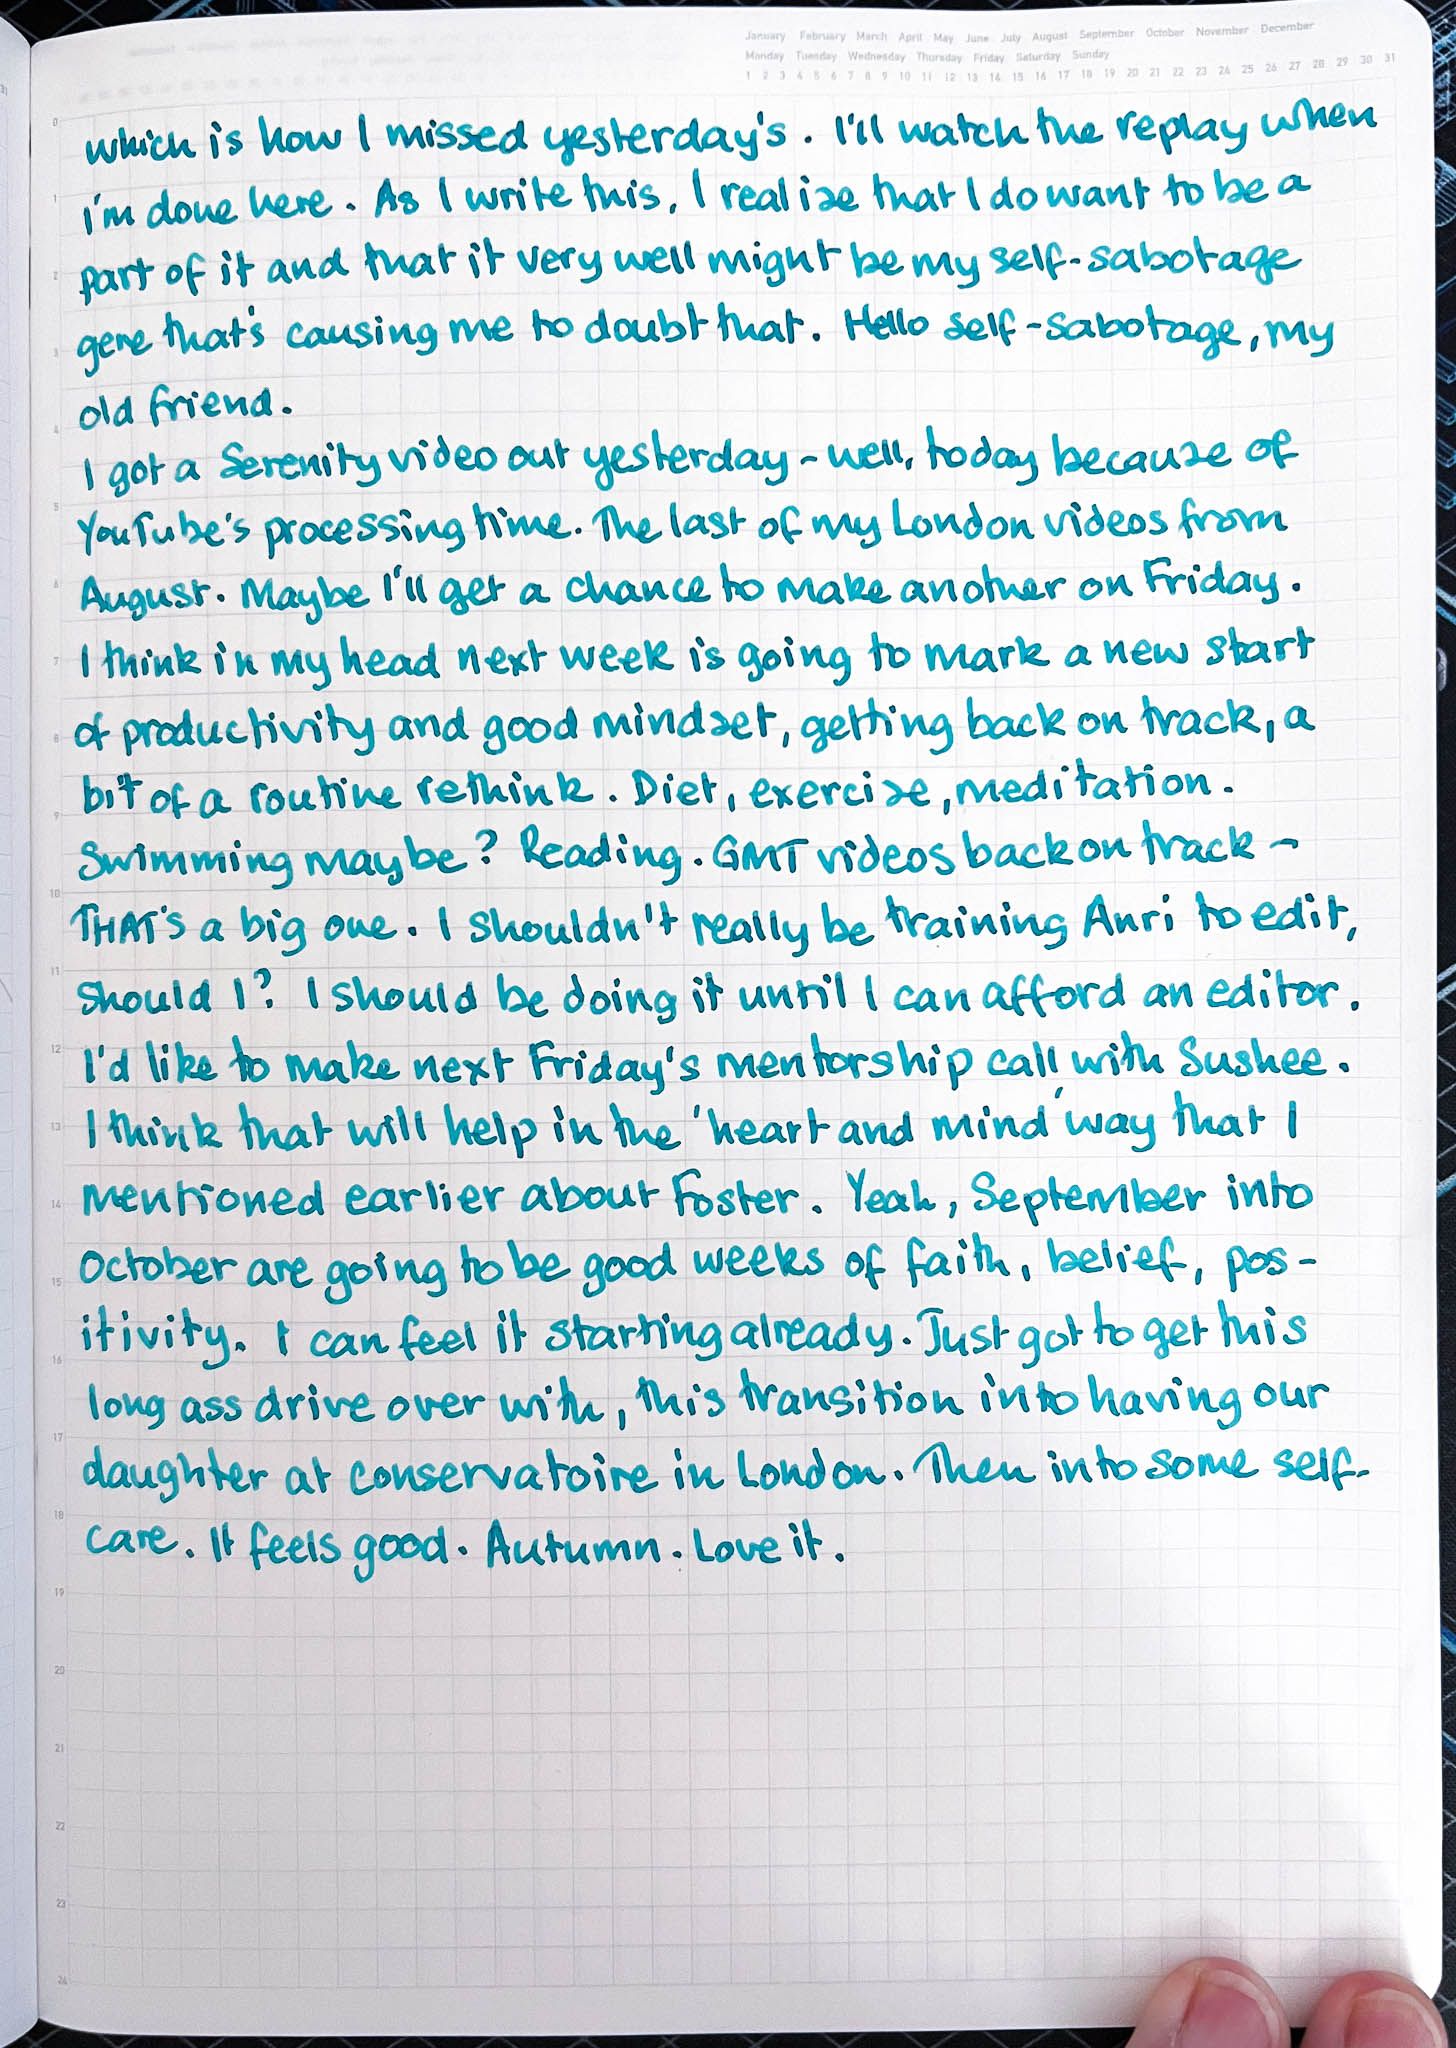 January February March April May June July August September October November December
Monday Tuesday Wednesday Thursday Friday Saturday Sunday
1 2 3 4 5 6 7 8 9 10 11 12 13 14 15 16 17 18 19 20 21 22 23 24 25 26 27 28 29 30 31
0
which is how I missed yesterday's. I'll watch the replay when
1
i'm done here. As I write this, I realise that I do want to be a
2
part of it and that it very well might be my self-sabotage
3
gene that's causing me to doubt that. Hello self-sabotage, my
4
old friend.
I got a Serenity video out yesterday - well, today because of
5
YouTube's processing time. The last of my London videos from
6
August. Maybe I'll get a chance to make another on Friday.
7
I think in my head next week is going to mark a new start
8
of productivity and good mindset, getting back on track, a
9
bit of a routine rethink. Diet, exercise, meditation.
Swimming maybe? Reading. GMT videos back on track -
10
THAT's a big one. I shouldn't really be training Anri to edit,
11
should I? I should be doing it until I can afford an editor.
12
I'd like to make next Friday's mentorship call with Sushee.
13
I think that will help in the 'heart and mind' way that I
14
mentioned earlier about Foster. Yeah, September into
15
October are going to be good weeks of faith, belief, pos-
itivity. I can feel it starting already. Just got to get this
16
long ass drive over with, this transition into having our
17
daughter at conservatoire in London. Then into some self-
18
care. It feels good. Autumn. Love it.
19
20
21
22
23
24